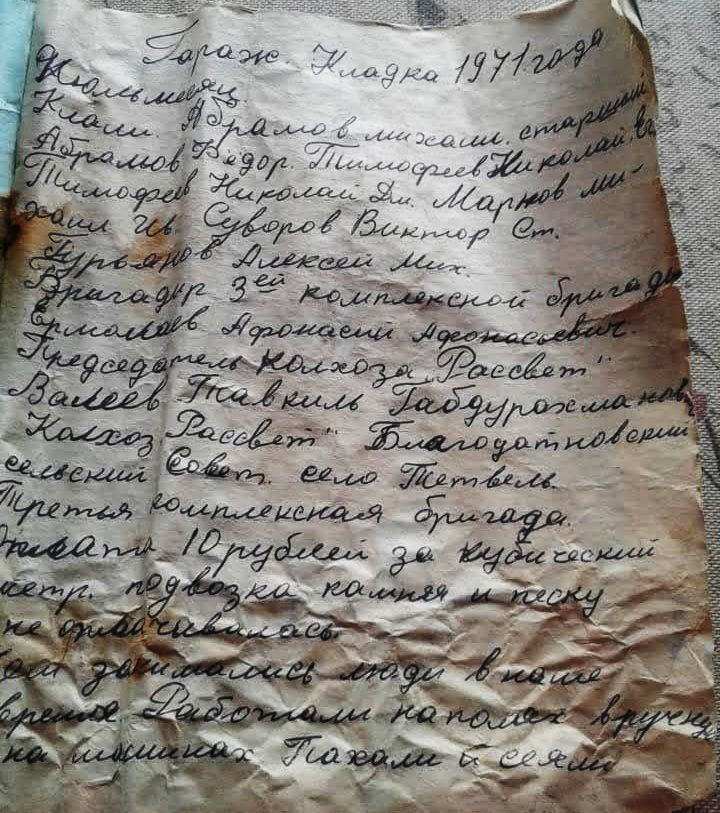 Гараж. Кладка 1971 года
Июль месяц.
Клали. Абрамов михаил. старший
Абрамов Фёдор. Тимофеев Николай. Ег.
Тимофеев Николай Дм. Марков ми-
хаил Ив. Суворов Виктор Ст.
Гурьянов Алексей Мих.
Бригадир 3ей комплексной бригады
Ермолаев Афонасий Афонасьевич.
Председатель колхоза „Рассвет"
Валеев Тавкиль Габдурахманович
Колхоз „Рассвет" Благодатновский
сельский Совет. село Тетвель.
Третья комплексная бригада.
Оплата 10 рублей за кубический
метр. подвозка камня и песку
не оплачивалась.
Чем занимались люди в наше
время. Работали на полях вручную,
на машинах Пахали и сеяли